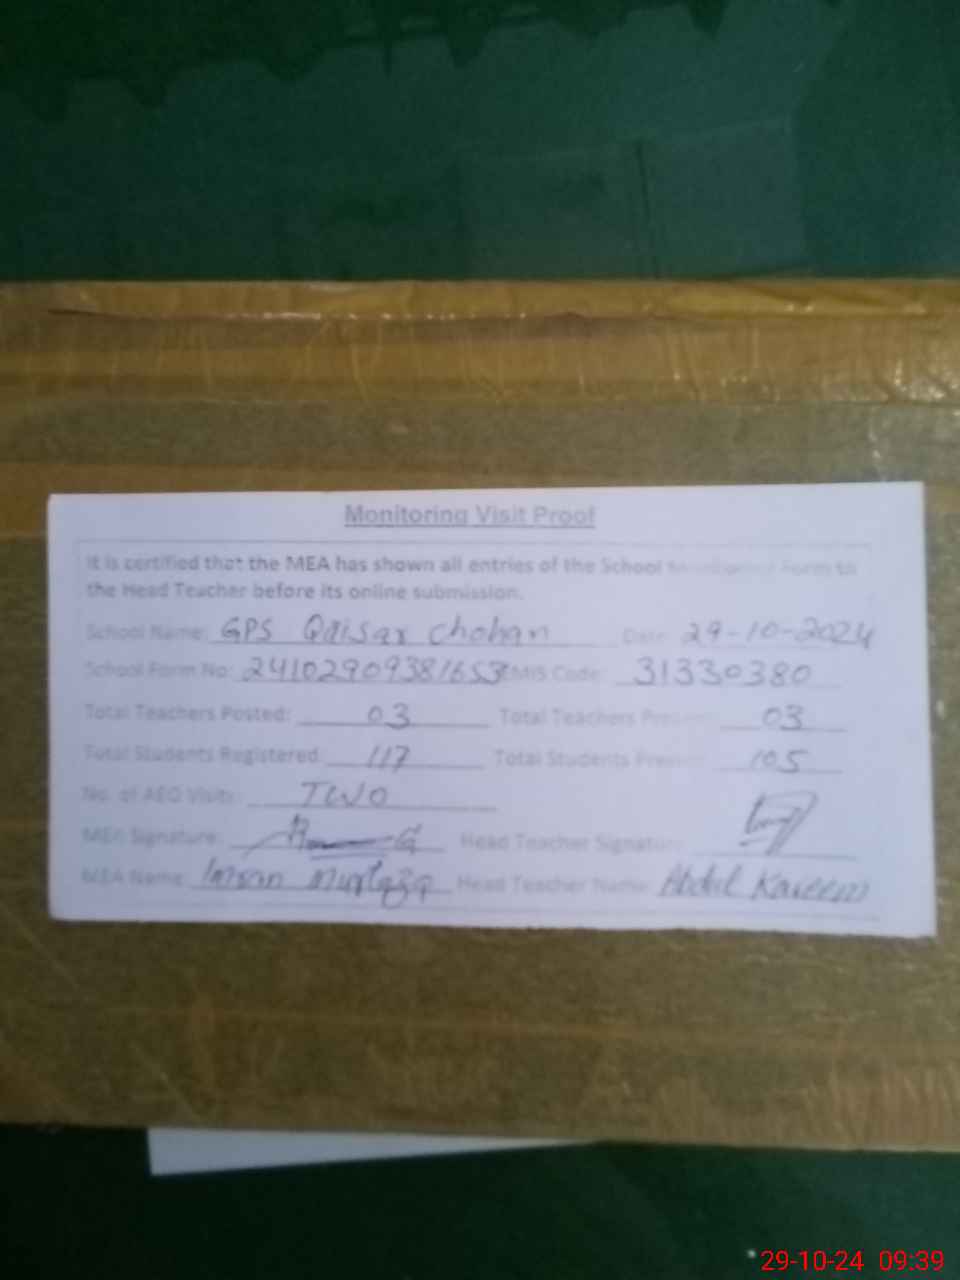 Monitoring Visit Proof
It is certified that the MEA has shown all entries of the School Form to
the Head Teacher before its online submission.
School Name: GPS Qaisar Chohan Date: 29-10-2024
School Form No: 24102909381653 EMIS Code: 31330380
Total Teachers Posted: 03 Total Teachers Present: 03
Total Students Registered: 117 Total Students Present: 105
No. of AEO Visits: TWO
MEA Signature: Head Teacher Signature:
MEA Name: Murtaza Head Teacher Name: Abdul Kareem
29-10-24 09:39